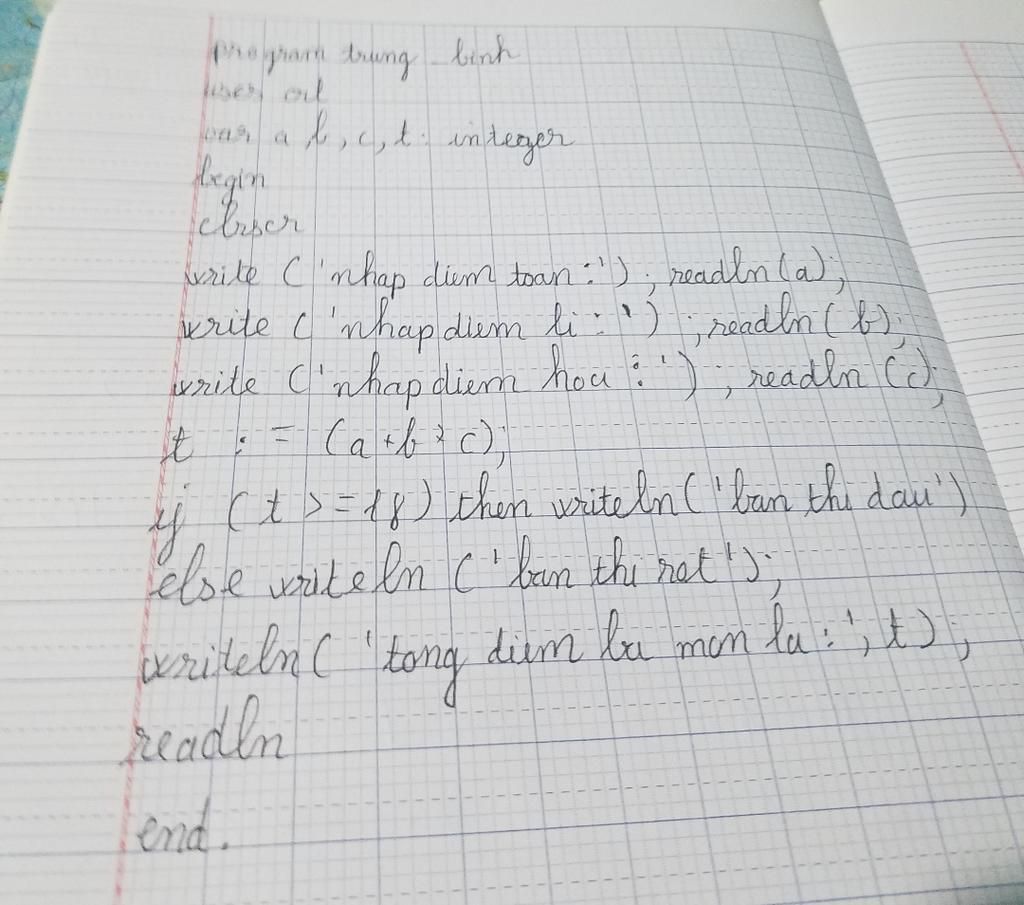 program trung binh
uses crt
var a b, c, t: integer
begin
clrscr
write ('nhap diem toan:'); readln(a);
write ('nhap diem li:'); readln(b);
write ('nhap diem hoa:'); readln(c);
t := (a+b+c);
if (t >= 18) then writeln('ban thi dau')
else writeln ('ban thi rot');
writeln('tong diem ba mon la:', t);
readln
end.